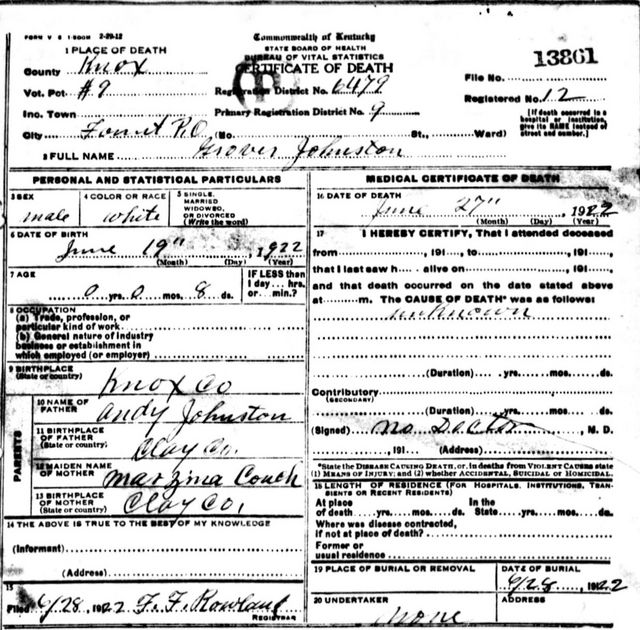 FORM V S 1-500M 2-29-12
Commonwealth of Kentucky
STATE BOARD OF HEALTH
BUREAU OF VITAL STATISTICS
CERTIFICATE OF DEATH
13861
1 PLACE OF DEATH
County Knox
Vot. Pct #9
Inc. Town
City P.O. (No. St., Ward)
Registration District No. 6479
Primary Registration District No. 9
File No.
Registered No. 12
[If death occurred in a hospital or institution, give its NAME instead of street and number.]
2 FULL NAME Grover Johnston
PERSONAL AND STATISTICAL PARTICULARS
3 SEX
male
4 COLOR OR RACE
white
5 SINGLE, MARRIED WIDOWED, OR DIVORCED (Write the word)
6 DATE OF BIRTH
June 19" 1922
(Month) (Day) (Year)
7 AGE
0 yrs. 0 mos. 8 ds.
IF LESS than 1 day hrs. or min.?
8 OCCUPATION
(a) Trade, profession, or particular kind of work
(b) General nature of industry business or establishment in which employed (or employer)
9 BIRTHPLACE (State or country)
Knox Co
PARENTS
10 NAME OF FATHER
Andy Johnston
11 BIRTHPLACE OF FATHER (State or country)
Clay Co.
12 MAIDEN NAME OF MOTHER
Marzina Couch
13 BIRTHPLACE OF MOTHER (State or country)
Clay Co,
14 THE ABOVE IS TRUE TO THE BEST OF MY KNOWLEDGE
(Informant)
(Address)
15
Filed 6/28, 1922 F. F. Rowland
REGISTRAR
MEDICAL CERTIFICATE OF DEATH
16 DATE OF DEATH
June 27" 1922
(Month) (Day) (Year)
17 I HEREBY CERTIFY, That I attended deceased
from , 191 , to , 191 ,
that I last saw h alive on , 191 ,
and that death occurred on the date stated above
at m. The CAUSE OF DEATH* was as follows:
unknown
(Duration) yrs. mos. ds.
Contributory
(SECONDARY)
(Duration) yrs. mos. ds.
(Signed) No Doctor, M. D.
, 191 (Address)
*State the DISEASE CAUSING DEATH, or, in deaths from VIOLENT CAUSES state
(1) MEANS OF INJURY; and (2) whether ACCIDENTAL, SUICIDAL or HOMICIDAL.
18 LENGTH OF RESIDENCE (FOR HOSPITALS, INSTITUTIONS, TRANSIENTS OR RECENT RESIDENTS)
At place of death yrs. mos. ds. In the State yrs. mos. ds.
Where was disease contracted, if not at place of death?
Former or usual residence
19 PLACE OF BURIAL OR REMOVAL
DATE OF BURIAL
6/28, 1922
20 UNDERTAKER
None
ADDRESS